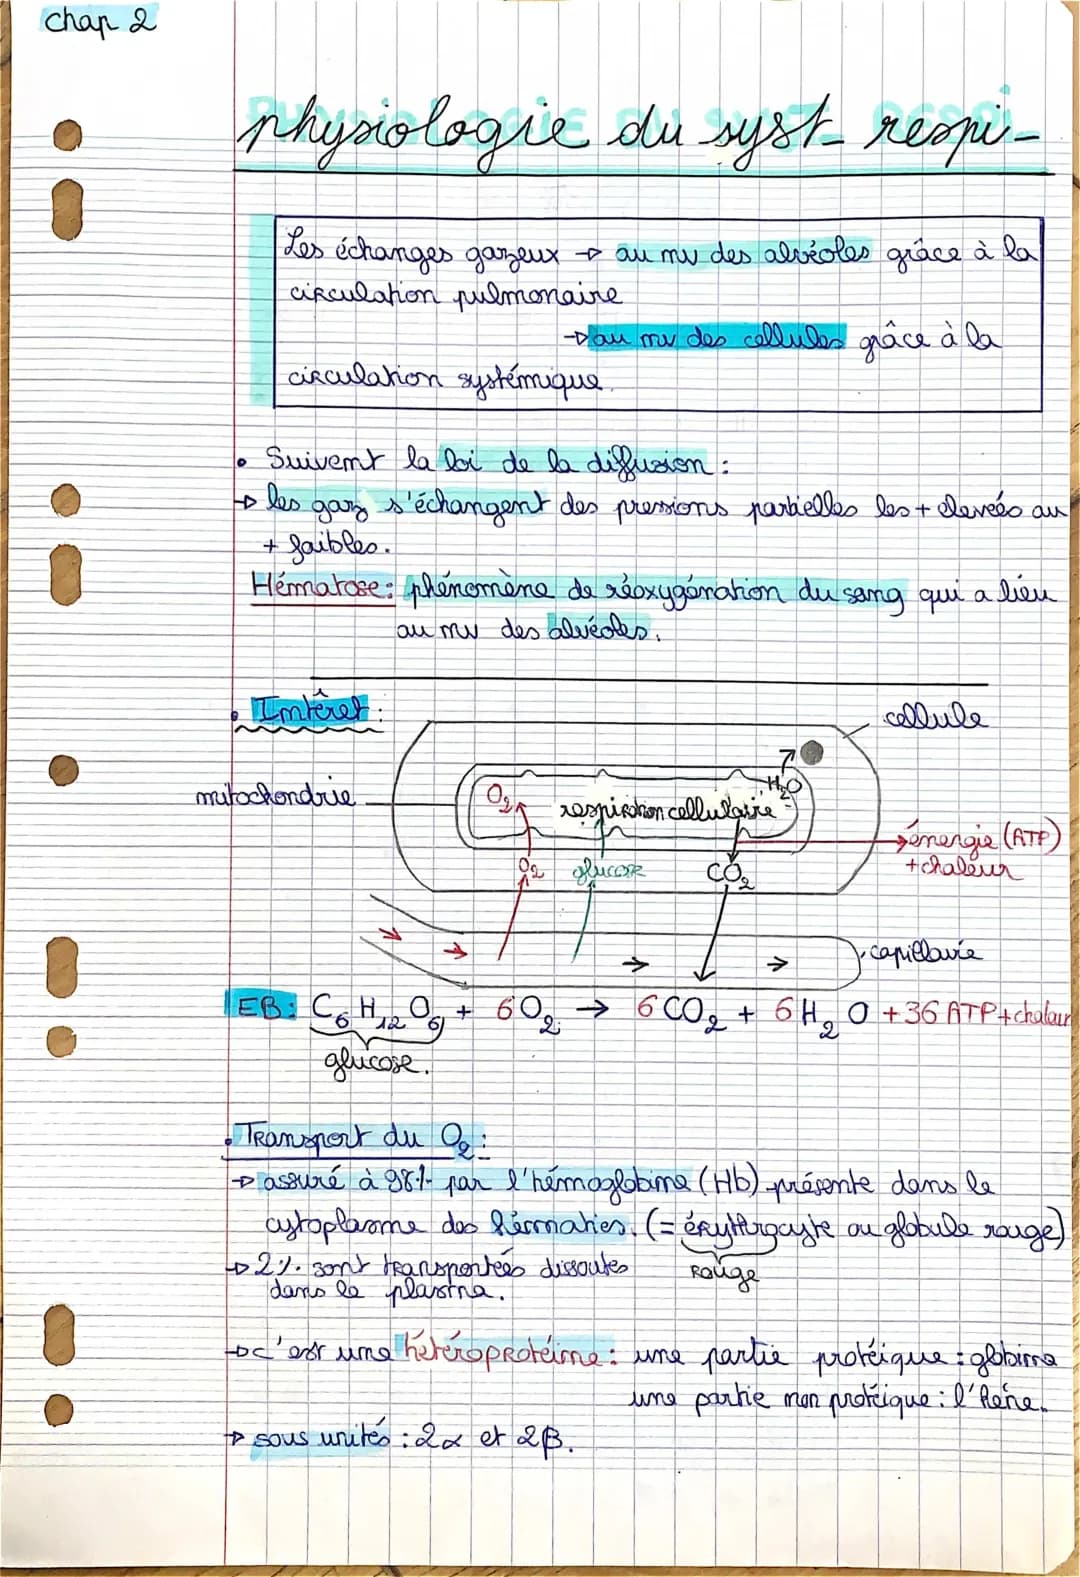 chap 2
physiologie du syst. respi-
Les échanges gazeux → au nv des alvéoles grâce à la
circulation pulmonaire
→ au nv des cellules grâce à la
circulation systémique.
• Suivent la loi de la diffusion :
→ les gaz s'échangent des pressions partielles les + elevées au
+ faibles.
Hématose : phénomène de réoxygénation du sang qui a lieu
au nv des alvéoles.
• Intêret :
cellule
mitochondrie
O₂
respiration cellulaire
H₂O
énergie (ATP)
+ chaleur
O₂ glucose CO₂
capillaire
EB : C₆H₁₂O₆ + 6O₂ → 6CO₂ + 6H₂O + 36 ATP + chaleur
glucose.
• Transport du O₂ :
→ assuré à 98% par l'hémoglobine (Hb) présente dans le
cytoplasme des hématies. (= érythrocyte ou globule rouge)
→ 2%. sont transportées dissoutes
rouge
dans le plasma.
→ c'est une hétéroprotéine : une partie protéique : globine
une partie non protéique : l'hème.
→ sous unités : 2α et 2β.